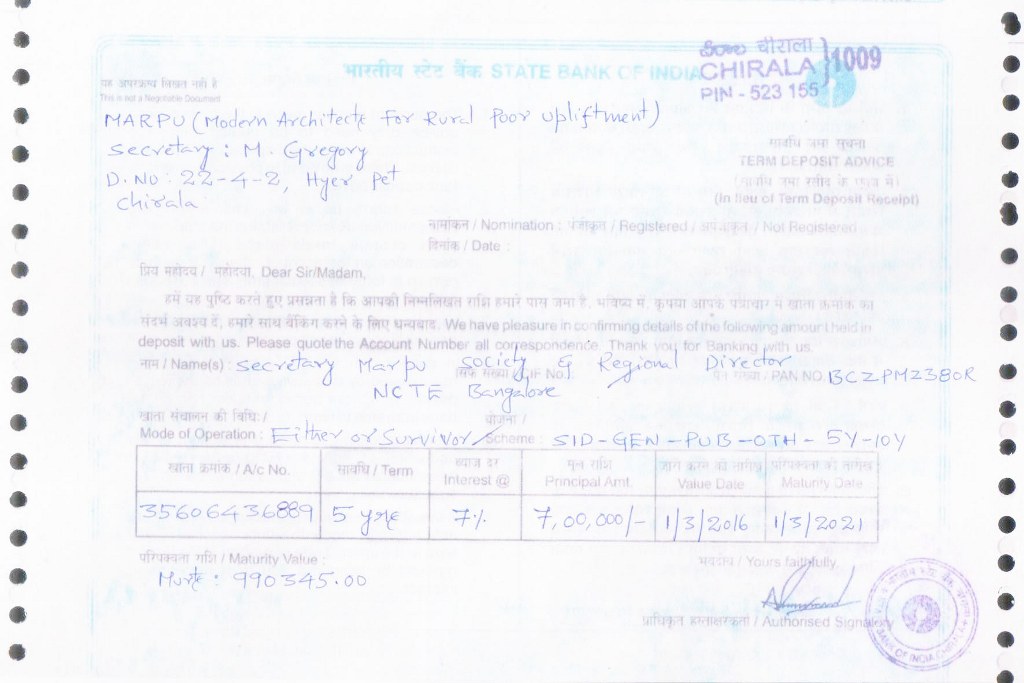 भारतीय स्टेट बैंक STATE BANK OF INDIA
चीराला
CHIRALA
PIN - 523 155
1009
यह अपरक्राम्य लिखत नहीं है
This is not a Negotiable Document
MARPU (Modern Architects for Rural Poor Upliftment)
Secretary : M. Gregory
D. No : 22-4-2, Hyer pet
Chirala
सावधि जमा सूचना
TERM DEPOSIT ADVICE
(सावधि जमा रसीद के एवज में)
(In lieu of Term Deposit Receipt)
नामांकन / Nomination : पंजीकृत / Registered / अपंजीकृत / Not Registered
दिनांक / Date :
प्रिय महोदय / महोदया, Dear Sir/Madam,
हमें यह पुष्टि करते हुए प्रसन्नता है कि आपकी निम्नलिखित राशि हमारे पास जमा है, भविष्य में, कृपया आपके पत्राचार में खाता क्रमांक का
संदर्भ अवश्य दें, हमारे साथ बैंकिंग करने के लिए धन्यवाद. We have pleasure in confirming details of the following amount held in
deposit with us. Please quote the Account Number all correspondence. Thank you for Banking with us.
नाम / Name(s) : Secretary Marpu Society & Regional Director
NCTE Bangalore
(CIF No.)
पैन संख्या / PAN NO. BCZPM2380R
खाता संचालन की विधि: /
Mode of Operation : Either or Survivor
योजना /
Scheme : SID-GEN-PUB-OTH-5Y-10Y
खाता क्रमांक / A/c No. सावधि / Term ब्याज दर Interest @ मूल राशि Principal Amt. जारी करने की तारीख Value Date परिपक्वता की तारीख Maturity Date
35606436889 5 yrs 7% 7,00,000/- 1/3/2016 1/3/2021
परिपक्वता राशि / Maturity Value :
: 990345.00
भवदीय / Yours faithfully,
प्राधिकृत हस्ताक्षरकर्ता / Authorised Signatory
BANK OF INDIA, CHIRALA